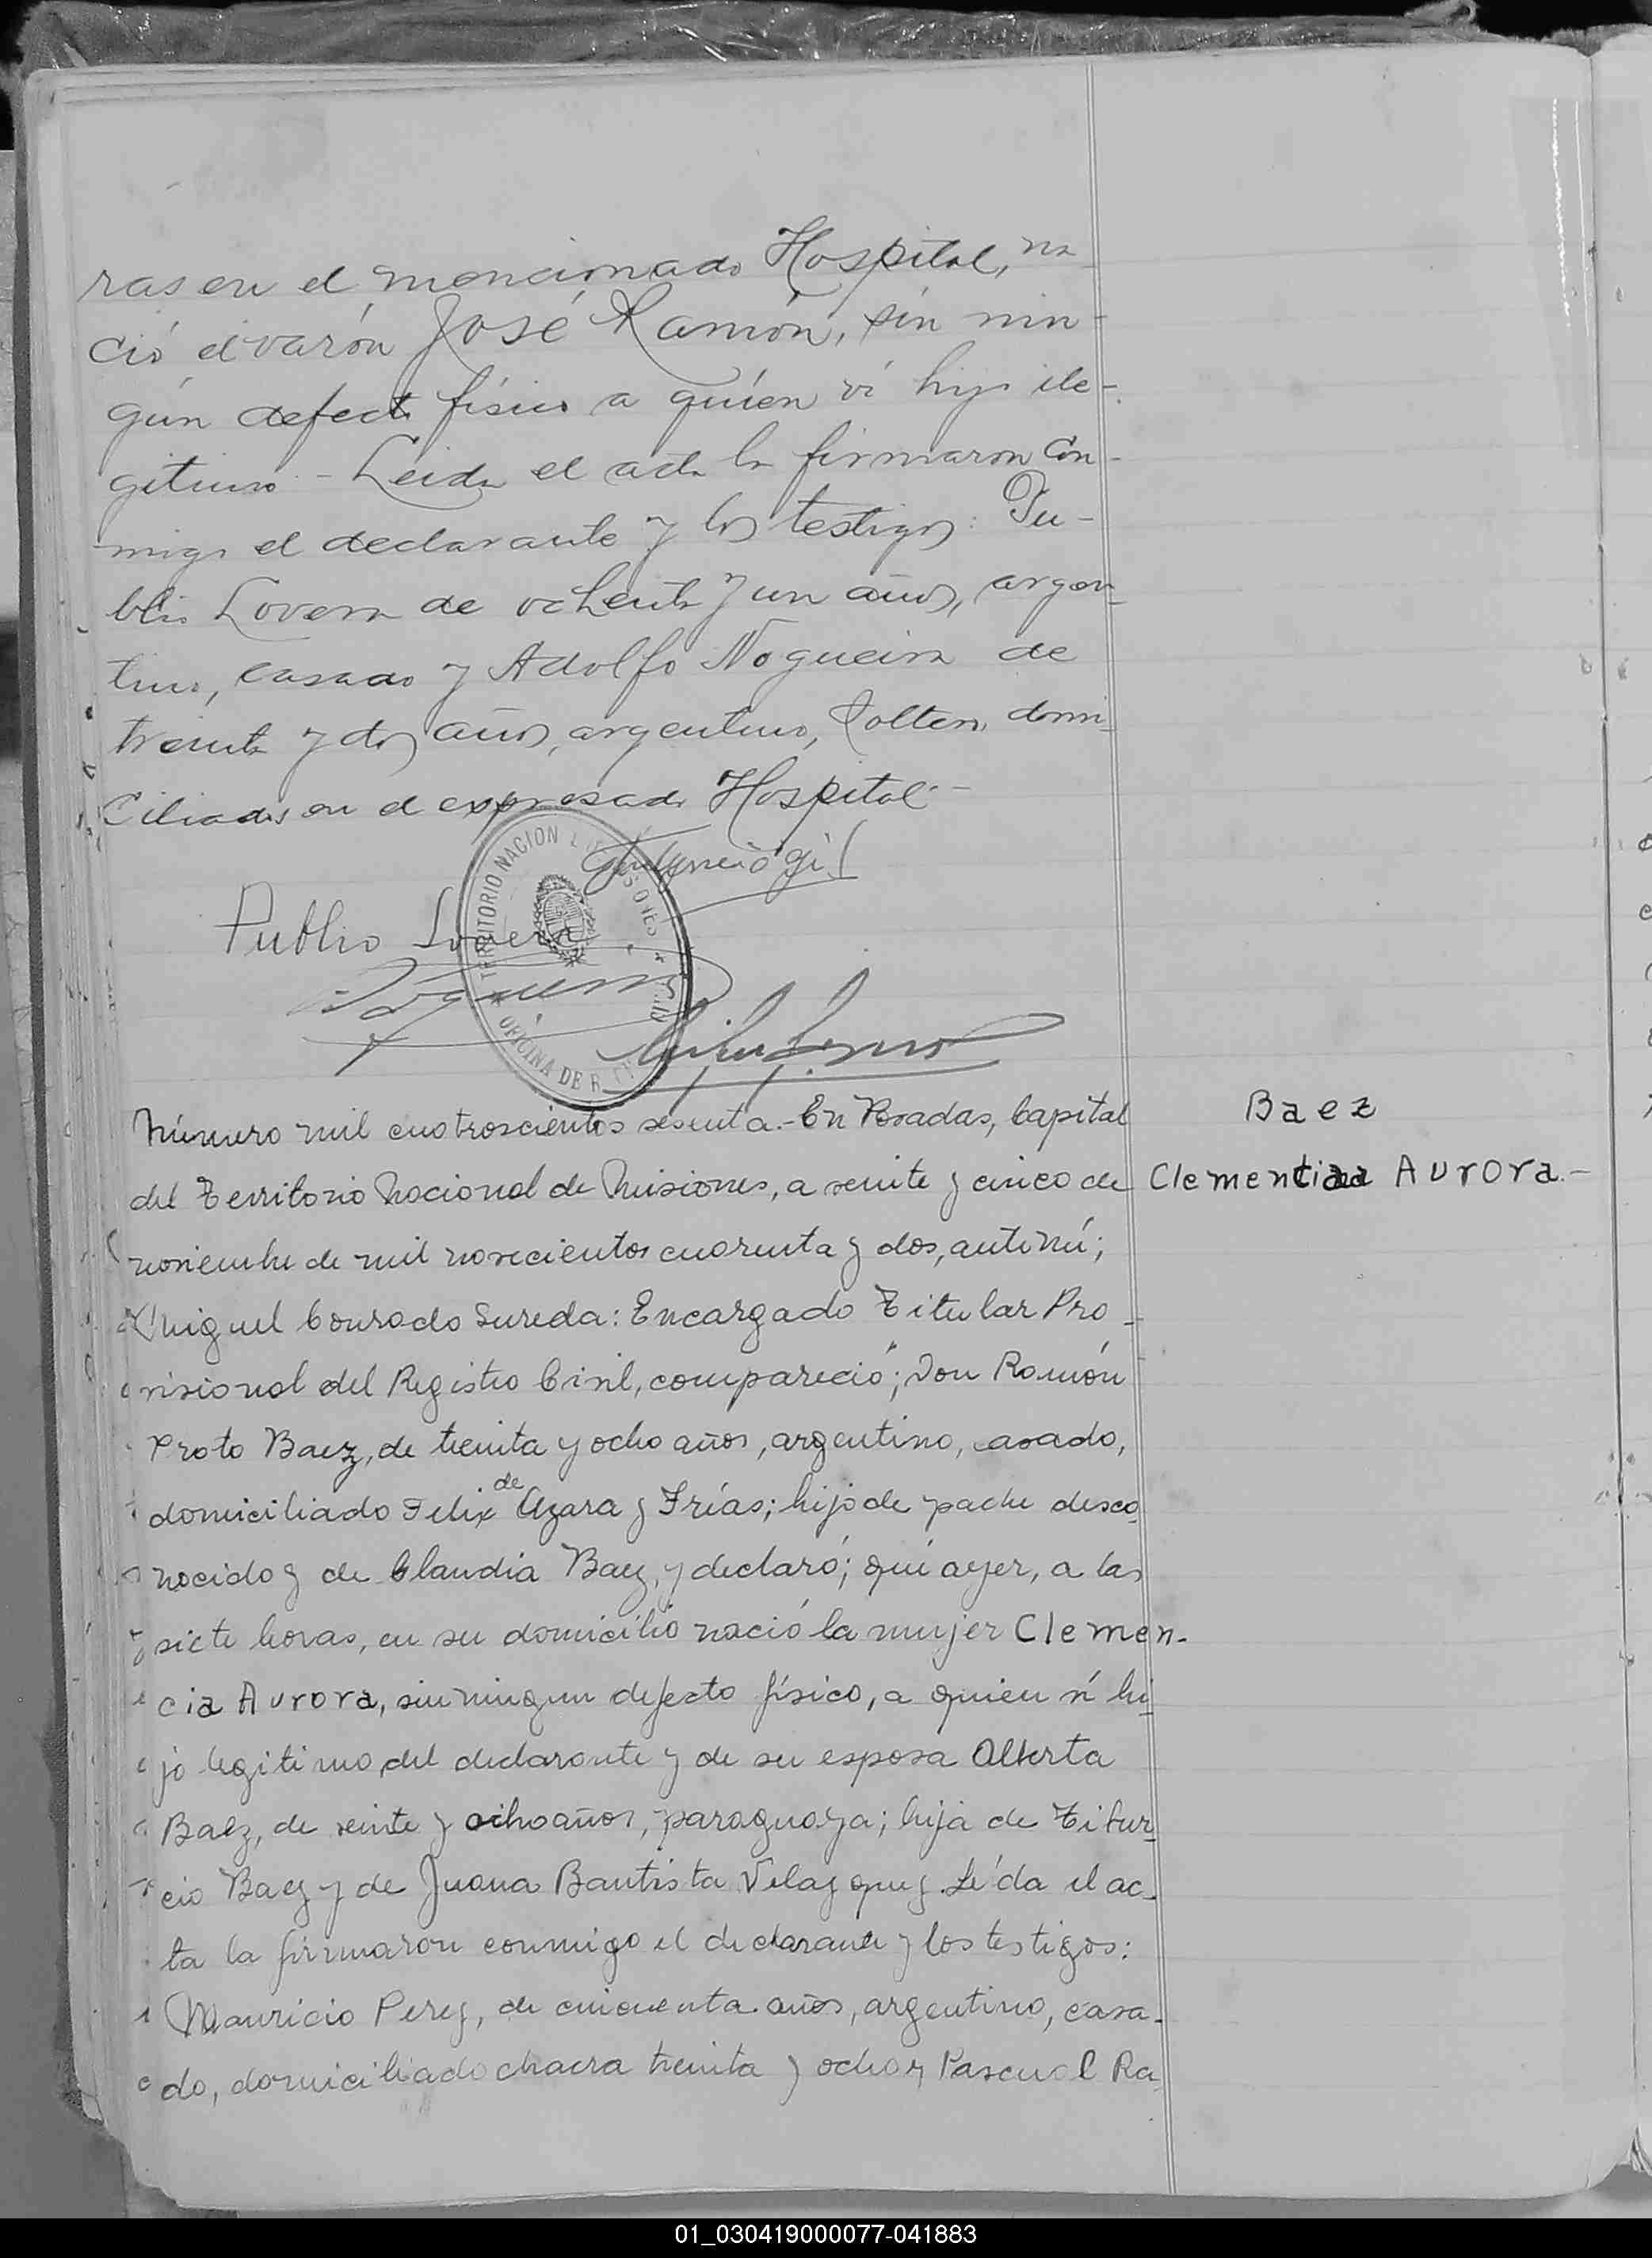 ras en el mencionado Hospital, na
ció el varón José Ramón, sin nin-
gún defecto físico a quién ví hijo ile-
gitimo - Leida el acta la firmaron con-
migo el declarante y los testigos: Pu-
blio Lovera de ochenta y un años, argen-
tino, casado y Adolfo Nogueira de
treinta y dos años, argentino, soltero, domi-
ciliados en el expresado Hospital -
TERRITORIO NACION
OFICINA DE R
Gil
Publio Lovera
Número mil cuatroscientos sesenta.- En Posadas, Capital
del Territorio Nacional de Misiones, a veinte y cinco de
noviembre de mil novecientos cuarenta y dos, ante mí;
Miguel Conrado Sureda: Encargado Titular Pro-
visional del Registro Civil, compareció; Don Ramón
Proto Baez, de treinta y ocho años, argentino, casado,
domiciliado Felix de Azara y Frías; hijo de padre desco-
nocido y de Claudia Baez, y declaró; que ayer, a las
siete horas, en su domicilio nació la mujer Clemen-
cia Aurora, sin ningun defecto físico, a quien ví hi-
jo legitimo del declarante y de su esposa Alberta
Baez, de veinte y ocho años, paraguaya; hija de Tibur-
cio Baez y de Juana Bautista Velazquez. Leída el ac-
ta la firmaron conmigo el declarante y los testigos:
Mauricio Perez, de cincuenta años, argentino, casa-
do, domiciliado chacra treinta y ocho y Pascual Ra
Baez
Clemencia Aurora.-
01_030419000077-041883